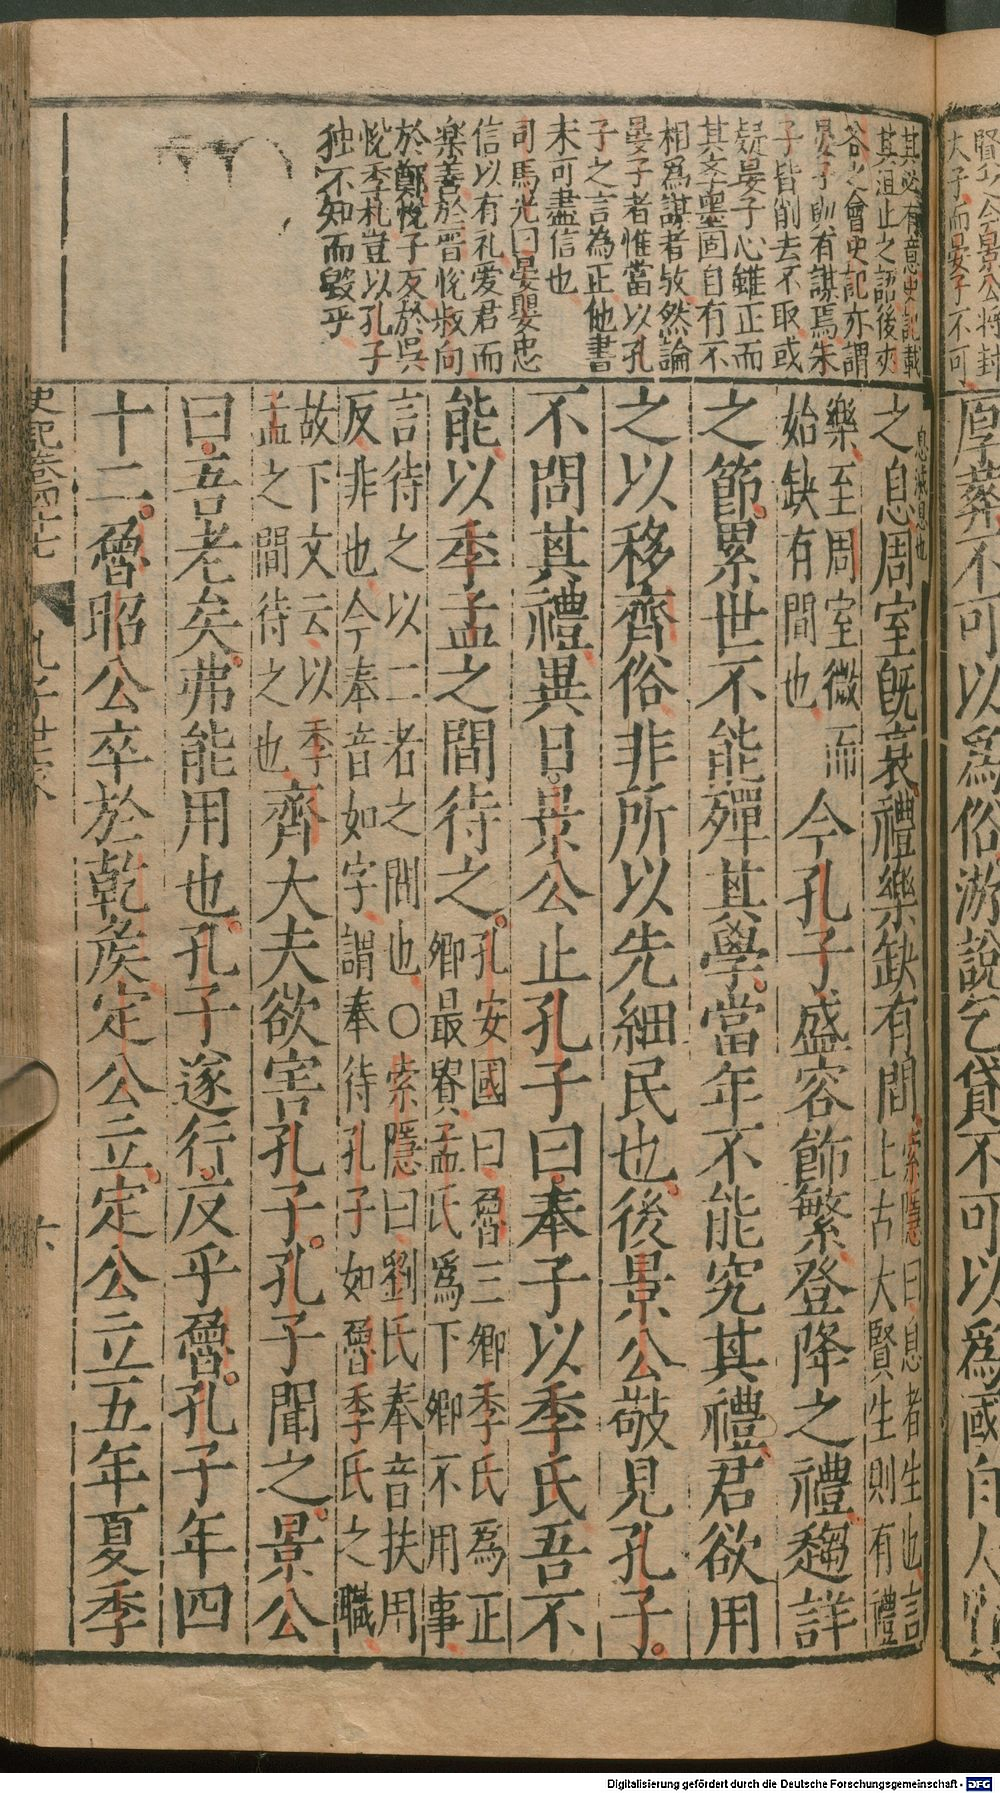 賢哉今景公将封
大子而晏子不可
厚葬不可以爲俗游說乞貸不可以爲國自大賢
其必有意史記載
其沮止之語後夾
谷之會史記亦謂
晏子則有謀焉朱
子皆削去不取或
疑晏子心雖正而
其李墨固自有不
相爲謀者攷然論
晏子者惟當以孔
子之言為正他書
未可盡信也
司馬光曰晏嬰忠
信以有礼爱君而
樂善於晋悅叔向
於鄭悅子反於吳
悅季札豈以孔子
独不知而毀乎
息滅息也
之息周室旣衰禮樂缺有間索隱曰息者生也言
上古大賢生則有禮
樂至周室微而
始缺有間也
今孔子盛容飾繁登降之禮趨詳
之節累世不能殫其學當年不能究其禮君欲用
之以移齊俗非所以先細民也後景公敬見孔子
不問其禮異日景公止孔子曰奉子以季氏吾不
能以季孟之間待之孔安國曰魯三卿季氏為正
卿最貴孟氏爲下卿不用事
言待之以二者之間也○索隱曰劉氏奉音扶用
反非也今奉音如字謂奉待孔子如魯季氏之職
故下文云以季
孟之間待之也
齊大夫欲害孔子孔子聞之景公
曰吾老矣弗能用也孔子遂行反乎魯孔子年四
十二魯昭公卒於乾矦定公立定公立五年夏季
史記卷四十七 孔子世家 六
Digitalisierung gefördert durch die Deutsche Forschungsgemeinschaft - DFG